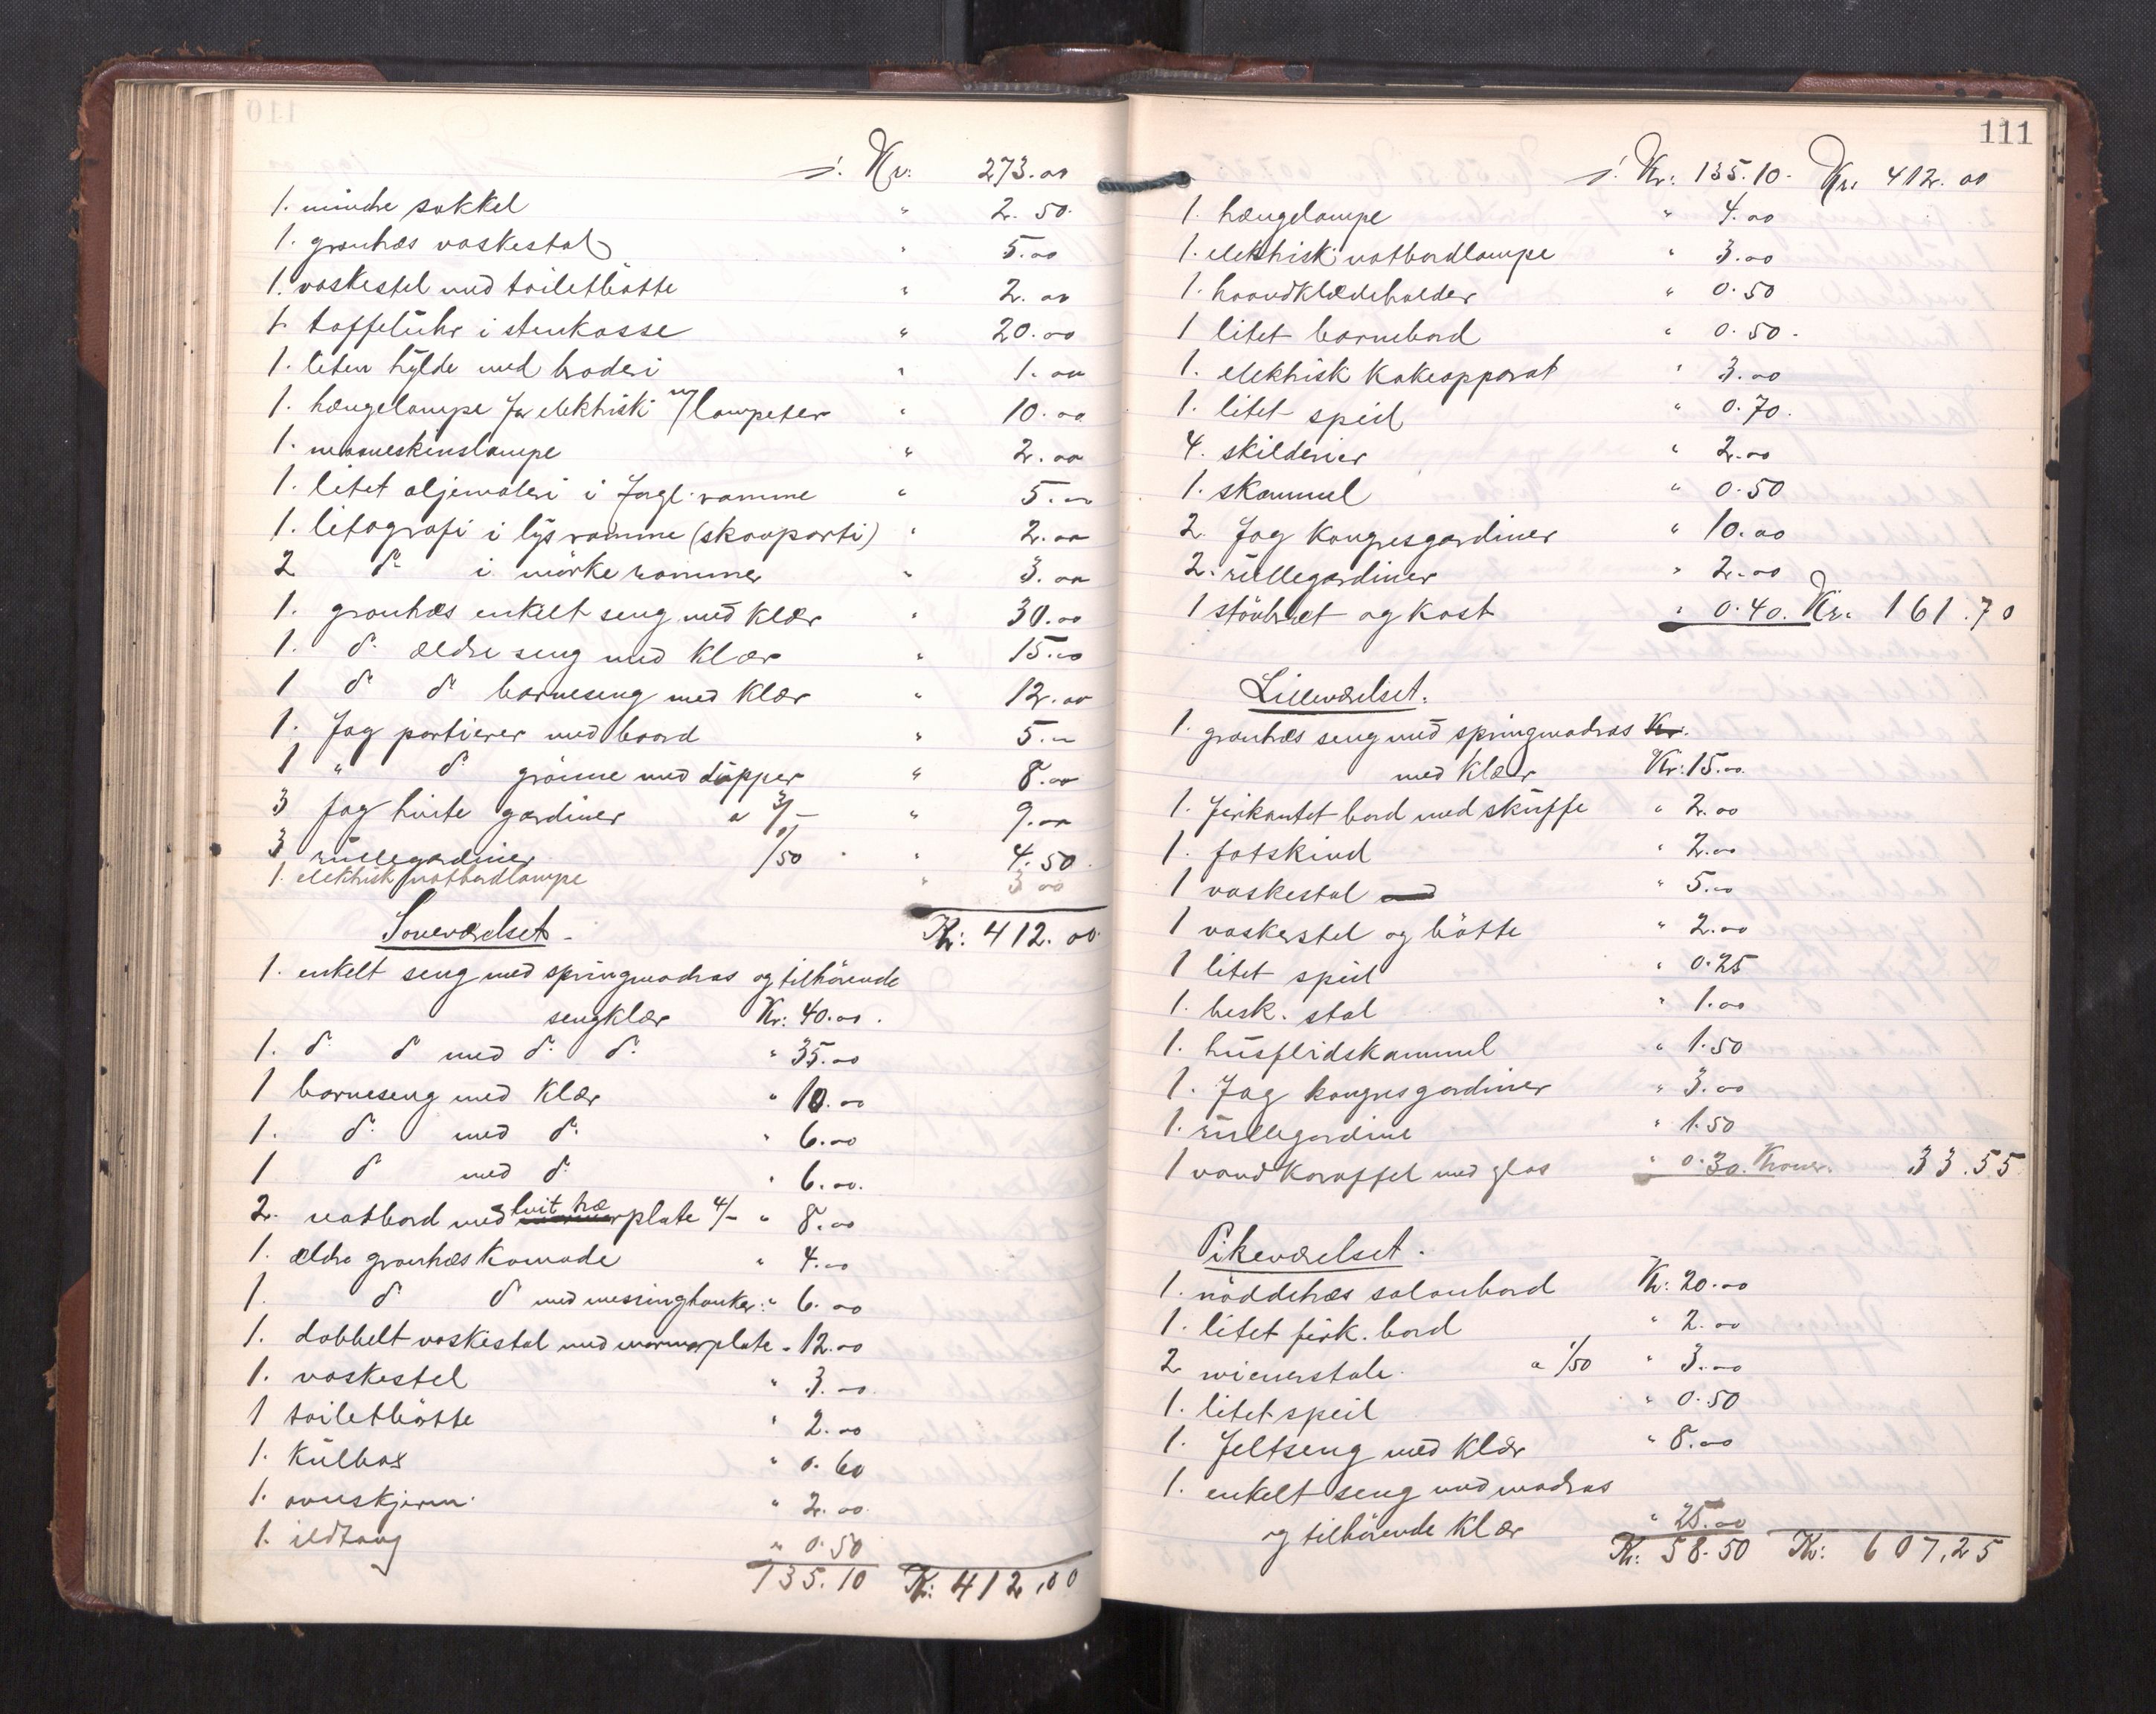 Kr: 273.00
1. mindre sokkel " 2.50.
1. grantræs vaskestol " 5.00
1. vaskestel med toiletbøtte " 2.00
1. taffeluhr i stenkasse " 20.00
1. liten hylde med broderi " 1.00
1. hængelampe for elektrisk m/lampeter " 10.00
1. maaneskinslampe " 2.00
1. litet oljemaleri i forgl. ramme " 5.00
1. litografi i lys ramme (skovparti) " 2.00
2 do i mörke rammer " 3.00
1. grantræs enkelt seng med klær " 30.00
1. do. ældre seng med klær " 15.00
1 do do barneseng med klær " 12.00
1. fag portierer med baard " 5.00
1 " do grönne med dupper " 8.00
3 fag hvite gardiner a 3/- " 9.00
3 rullegardiner 1/50 " 4.50
1. elektrisk natbordlampe " 3.00
Kr: 412.00
Soveværelset.
1. enkelt seng med springmadras og tilhörende
sengklær Kr: 40.00.
1. do do med do. do. " 35.00
1 barneseng med klær " 10.00
1. do. med do. " 6.00
1 do med do " 6.00.
2. natbord med hvit træ plate 4/- " 8.00
1. ældre grantræs komode " 4.00
1. do do med messinghanker: " 6.00
1. dobbelt vaskestol med marmorplate " 12.00
1. vaskestel " 3.00
1 toiletbøtte " 2.00
1. kulbox " 0.60
1. ovnskjerm. " 2.00.
1. ildtang " 0.50
135.10 Kr: 412,00
111
Kr: 135.10. Kr: 412.00
1. hængelampe " 4.00
1. elektrisk natbordlampe " 3.00
1. haandklædeholder " 0.50
1 litet barnebord " 0.50.
1. elektrisk kokeapparat " 3.00
1. litet speil " 0.70.
4. skilderier " 2.00
1. skammel " 0.50
2. fag kongresgardiner " 10.00
2. rullegardiner " 2.00
1 stövbræt og kost " 0.40. Kr: 161.70
Lilleværelset.
1. grantræs seng med springmadras Kr.
med klær Kr: 15.00.
1. firkantet bord med skuffe " 2.00
1. fotskind " 2.00
1 vaskestol med " 5.00
1 vaskestel og bötte " 2.00
1 litet speil " 0.25
1. besk. stol " 1.00
1. husflidskammel " 1.50
1. fag kongresgardiner " 3.00
1. rullegardine " 1.50
1 vandkaraffel med glas " 0.30. Kroner. 33.55
Pikeværelset.
1. nöddetræs salonbord Kr: 20.00
1. litet firk. bord " 2.00
2 wienerstole. a 1/50 " 3.00
1. litet speil " 0.50
1. feltseng med klær " 8.00
1. enkelt seng med madras
og tilhörende klær " 25.00
Kr: 58.50 Kr: 607,25